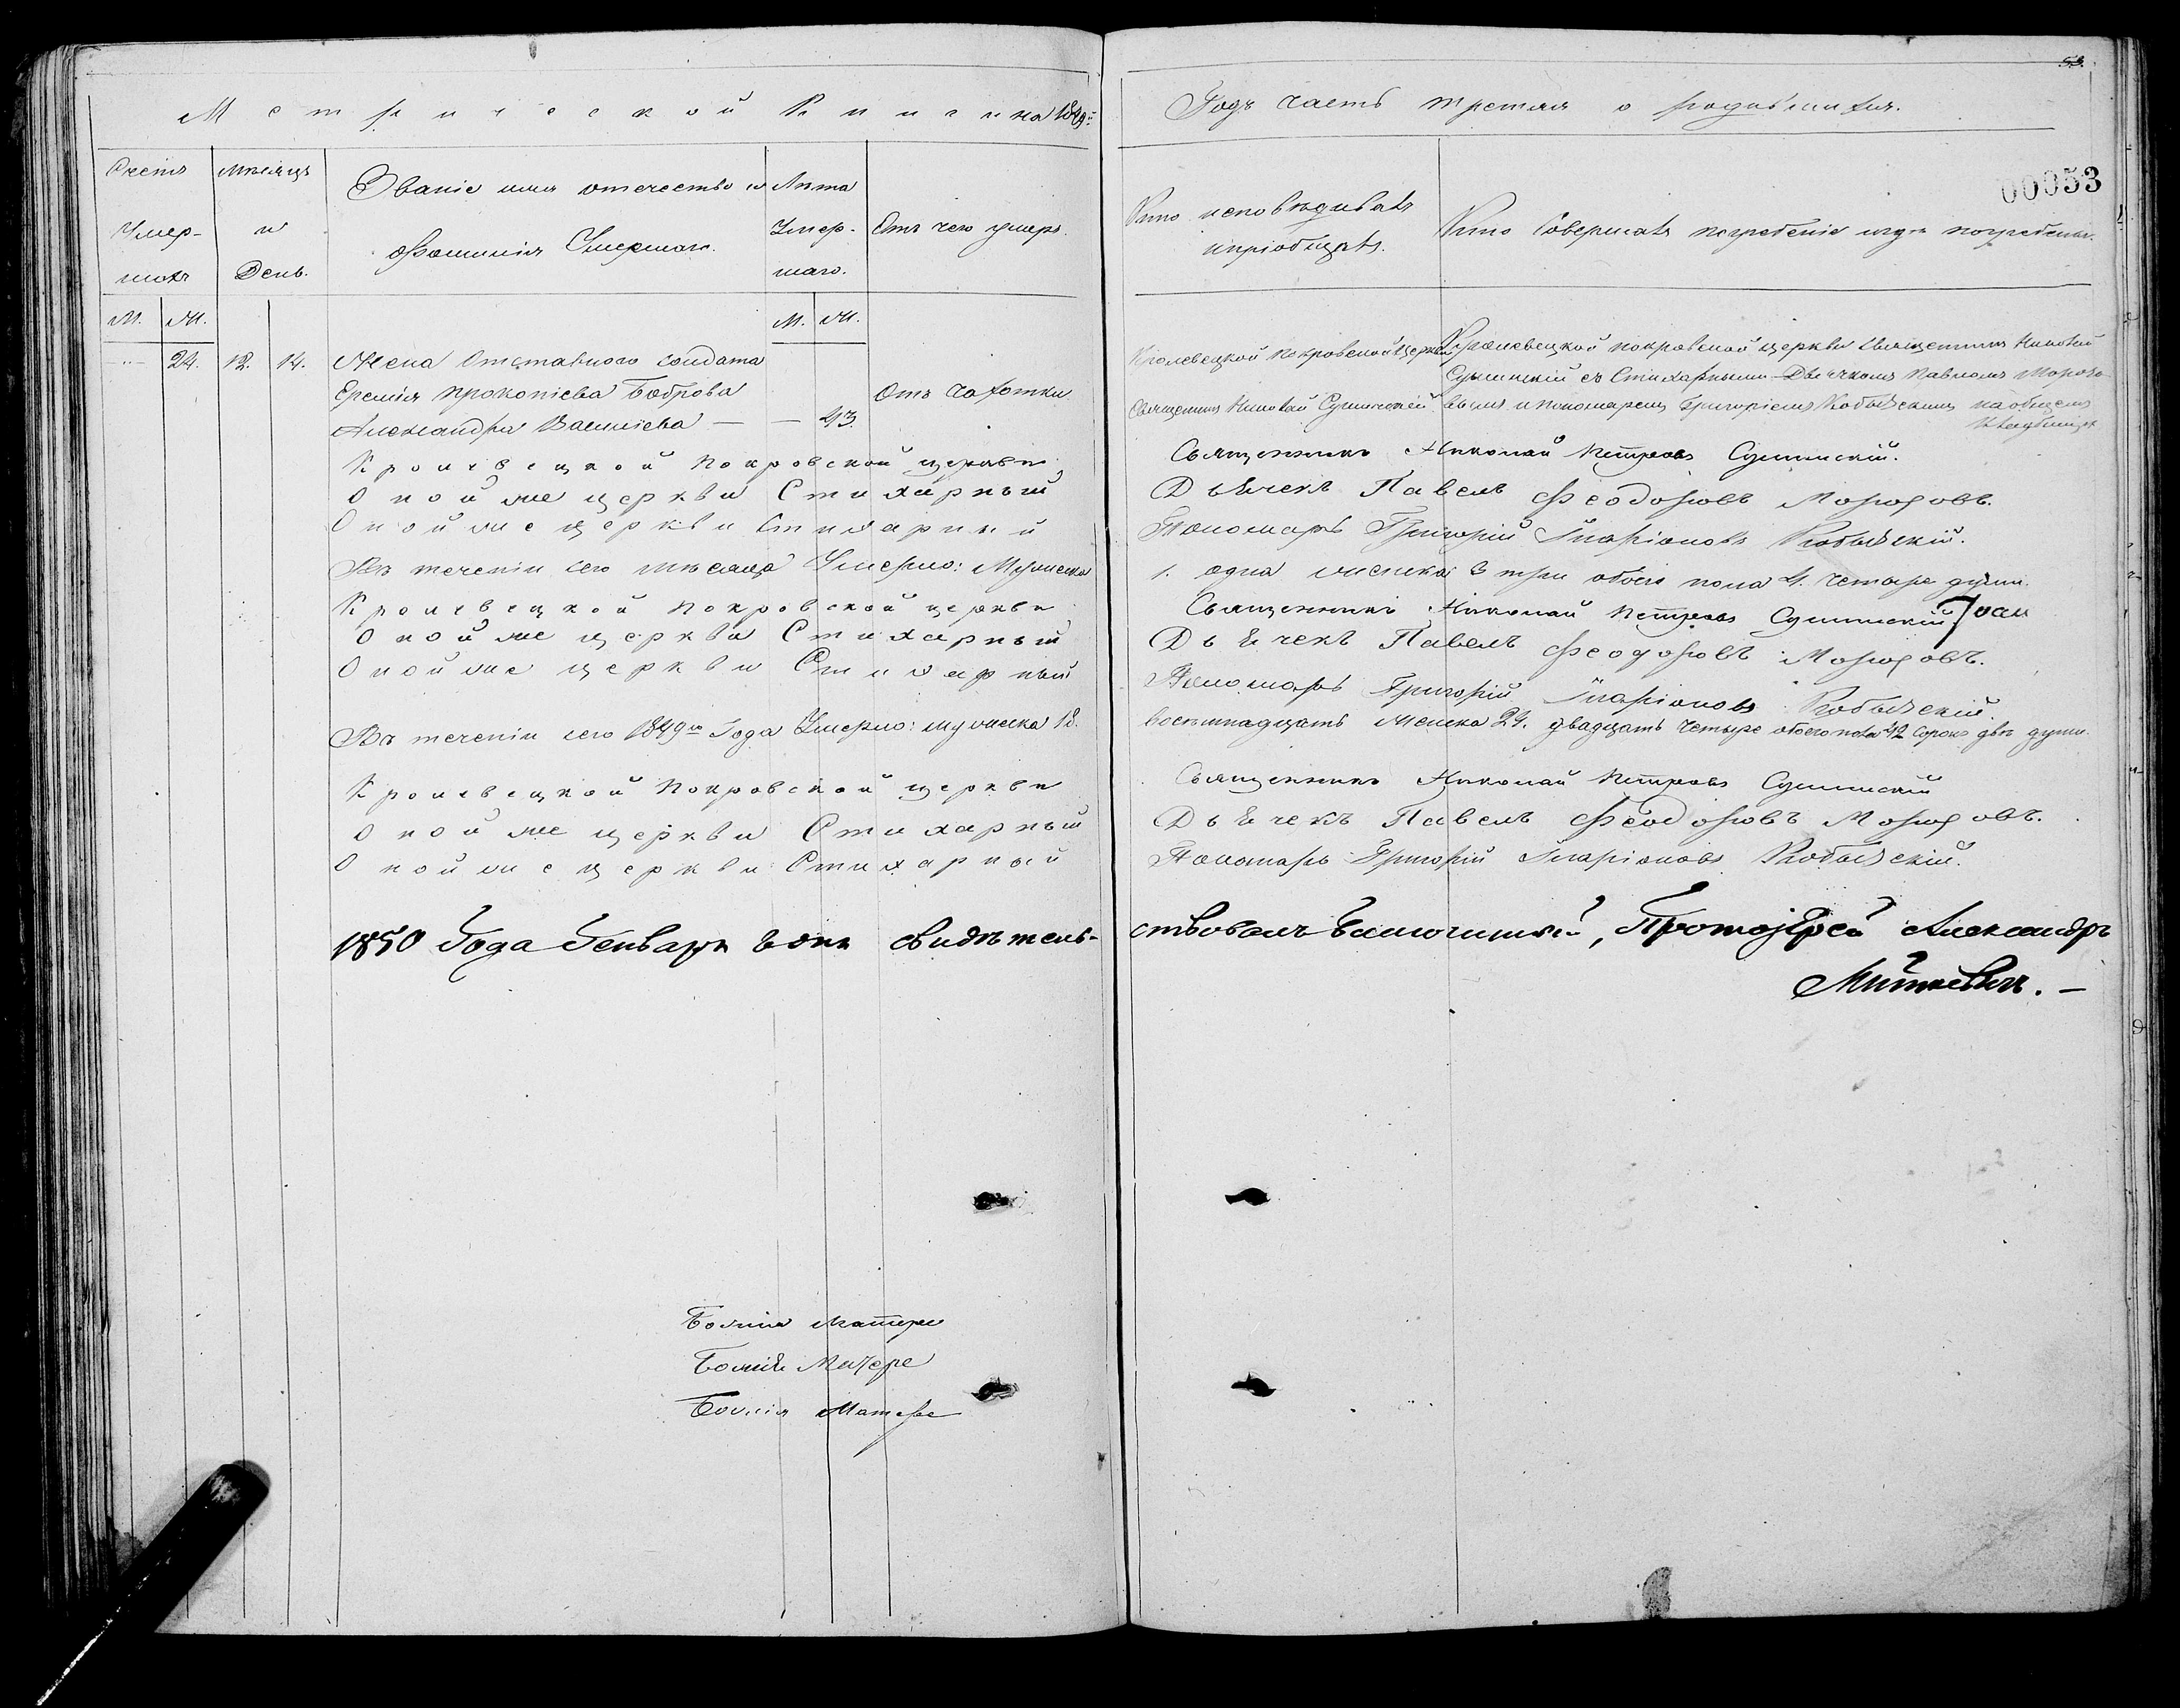 53.
Метрической Книги на 1849й
Годъ часть третяя о
00053
Счетъ Умершихъ
Мѣсяцъ и День.
Званіе имя отечество и Фамилія Умершаго.
Лѣта Умершаго.
Отъ чего умеръ.
Кто исповѣдывалъ и пріобщалъ.
Кто Совершалъ погребеніе и гдѣ погребены.
М. Ж.
М. Ж.
24. 12. 14. Жена Отставного солдата
Еремія Прокопіева Боброва
Александра Василіева — — 43.
Отъ чахотки
Кролевецкой Покровской Церкви
Священникъ Николай Сулимскій.
Кролевецкой покровской церкви священникъ Николай
Сулимскій съ Стихарными Дьячкомъ Павломъ Морозо-
вымъ и пономаремъ Григоріемъ на общемъ
кладбищѣ
Кролевецкой Покровской церкви Священникъ Николай Петровъ Сулимскій.
Оной же церкви Стихарный Дьячекъ Павелъ Феодоровъ Морозовъ.
Оной же церкви Стихарный Пономарь Григорій Иларіоновъ
Въ теченіи сего мѣсяца Умерло: Мужеска 1. одна женска 3 три обоего пола 4. четыре души.
Кролевецкой Покровской церкви Священникъ Николай Петровъ Сулимскій
Оной же церкви Стихарный Дьячекъ Павелъ Феодоровъ Морозовъ.
Оной же церкви Стихарный Пономарь Григорій Иларіоновъ
Въ теченіи сего 1849го Года Умерло: мужеска 18. восемнадцать женска 24. двадцать четыре обоего пола 42 сорокъ двѣ души.
Кролевецкой Покровской церкви Священникъ Николай Петровъ Сулимскій
Оной же церкви Стихарный Дьячекъ Павелъ Феодоровъ Морозовъ.
Оной же церкви Стихарный Пономарь Григорій Иларіоновъ
1850 Года Генваря дня свидѣтель-
ствовалъ Благочинный, Протоіерей Александръ
Миткевичъ. —
Божія Матере
Божія Матере
Божія Матере